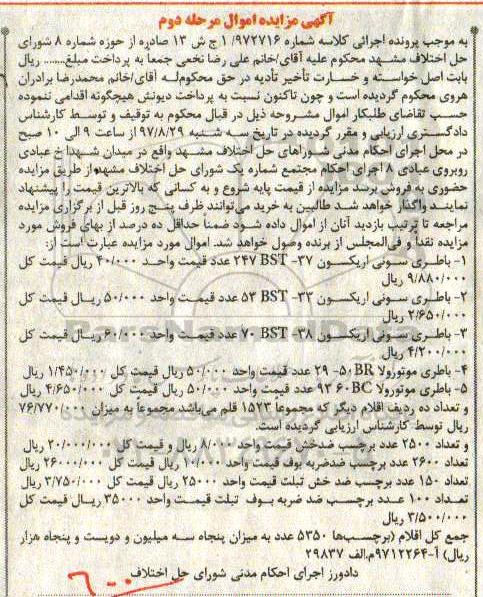 آگهی مزایده اموال مرحله دوم
به موجب پرونده اجرائی کلاسه شماره ۹۷۲۷۱۶/ ۱ ج ش ۱۳ صادره از حوزه شماره ۸ شورای
حل اختلاف مشهد محکوم علیه آقای/خانم علی رضا نخعی جمعا به پرداخت مبلغ........ ریال
بابت اصل خواسته و خسارت تأخیر تأدیه در حق محکوم‌له آقای/خانم محمدرضا برادران
هروی محکوم گردیده است و چون تاکنون نسبت به پرداخت دیونش هیچگونه اقدامی ننموده
حسب تقاضای طلبکار اموال مشروحه ذیل در قبال محکوم به توقیف و توسط کارشناس
دادگستری ارزیابی و مقرر گردیده در تاریخ سه شنبه ۹۷/۸/۲۹ از ساعت ۹ الی ۱۰ صبح
در محل اجرای احکام مدنی شوراهای حل اختلاف مشهد واقع در میدان شهدا خ عبادی
روبروی عبادی ۸ اجرای احکام مجتمع شماره یک شورای حل اختلاف مشهد از طریق مزایده
حضوری به فروش برسد مزایده از قیمت پایه شروع و به کسانی که بالاترین قیمت را پیشنهاد
نمایند واگذار خواهد شد طالبین به خرید می‌توانند ظرف پنج روز قبل از برگزاری مزایده
مراجعه تا ترتیب بازدید آنان از اموال داده شود ضمناً حداقل ده درصد از بهای فروش مورد
مزایده نقداً و فی‌المجلس از برنده وصول خواهد شد. اموال مورد مزایده عبارت است از:
۱- باطری سونی اریکسون BST -۳۷ ۲۴۷ عدد قیمت واحد ۴۰/۰۰۰ ریال قیمت کل
۹/۸۸۰/۰۰۰ ریال
۲- باطری سونی اریکسون BST -۳۳ ۵۳ عدد قیمت واحد ۵۰/۰۰۰ ریال قیمت کل
۲/۶۵۰/۰۰۰ ریال
۳- باطری سونی اریکسون BST -۳۸ ۷۰ عدد قیمت واحد ۶۰/۰۰۰ ریال قیمت کل
۴/۲۰۰/۰۰۰ ریال
۴- باطری موتورولا ۵۰BR- ۲۹ عدد قیمت واحد ۵۰/۰۰۰ ریال قیمت کل ۱/۴۵۰/۰۰۰ ریال
۵- باطری موتورولا ۶۰BC ۹۳ عدد قیمت واحد ۵۰/۰۰۰ ریال قیمت کل ۴/۶۵۰/۰۰۰ ریال
و تعداد ده ردیف اقلام دیگر که مجموعا ۱۵۲۳ قلم می‌باشد مجموعا به میزان ۷۶/۷۷۰/۰۰۰
ریال توسط کارشناس ارزیابی گردیده است.
و تعداد ۲۵۰۰ عدد برچسب ضدخش قیمت واحد ۸/۰۰۰ ریال و قیمت کل ۲۰/۰۰۰/۰۰۰ ریال
تعداد ۲۶۰۰ عدد برچسب ضدضربه بوف قیمت واحد ۱۰/۰۰۰ ریال قیمت کل ۲۶/۰۰۰/۰۰۰ ریال
تعداد ۱۵۰ عدد برچسب ضد خش تبلت قیمت واحد ۲۵۰۰۰ ریال قیمت کل ۳/۷۵۰/۰۰۰ ریال
تعداد ۱۰۰ عدد برچسب ضد ضربه بوف تبلت قیمت واحد ۳۵۰۰۰ ریال قیمت کل
۳/۵۰۰/۰۰۰ ریال
جمع کل اقلام (برچسب‌ها ۵۳۵۰ عدد به میزان پنجاه سه میلیون و دویست و پنجاه هزار
ریال) آ-۹۷۱۲۲۶۴ م.الف ۲۹۸۳۷
دادورز اجرای احکام مدنی شورای حل اختلاف
۶۰۰